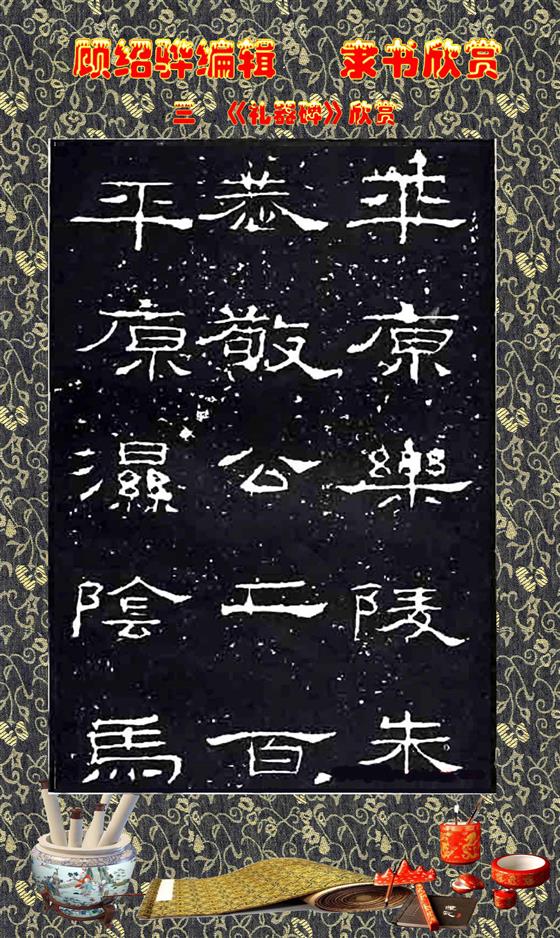 顾绍骅编辑 隶书欣赏
三 《礼器碑》欣赏
平原樂陵朱
恭敬公二百
平原濕陰馬